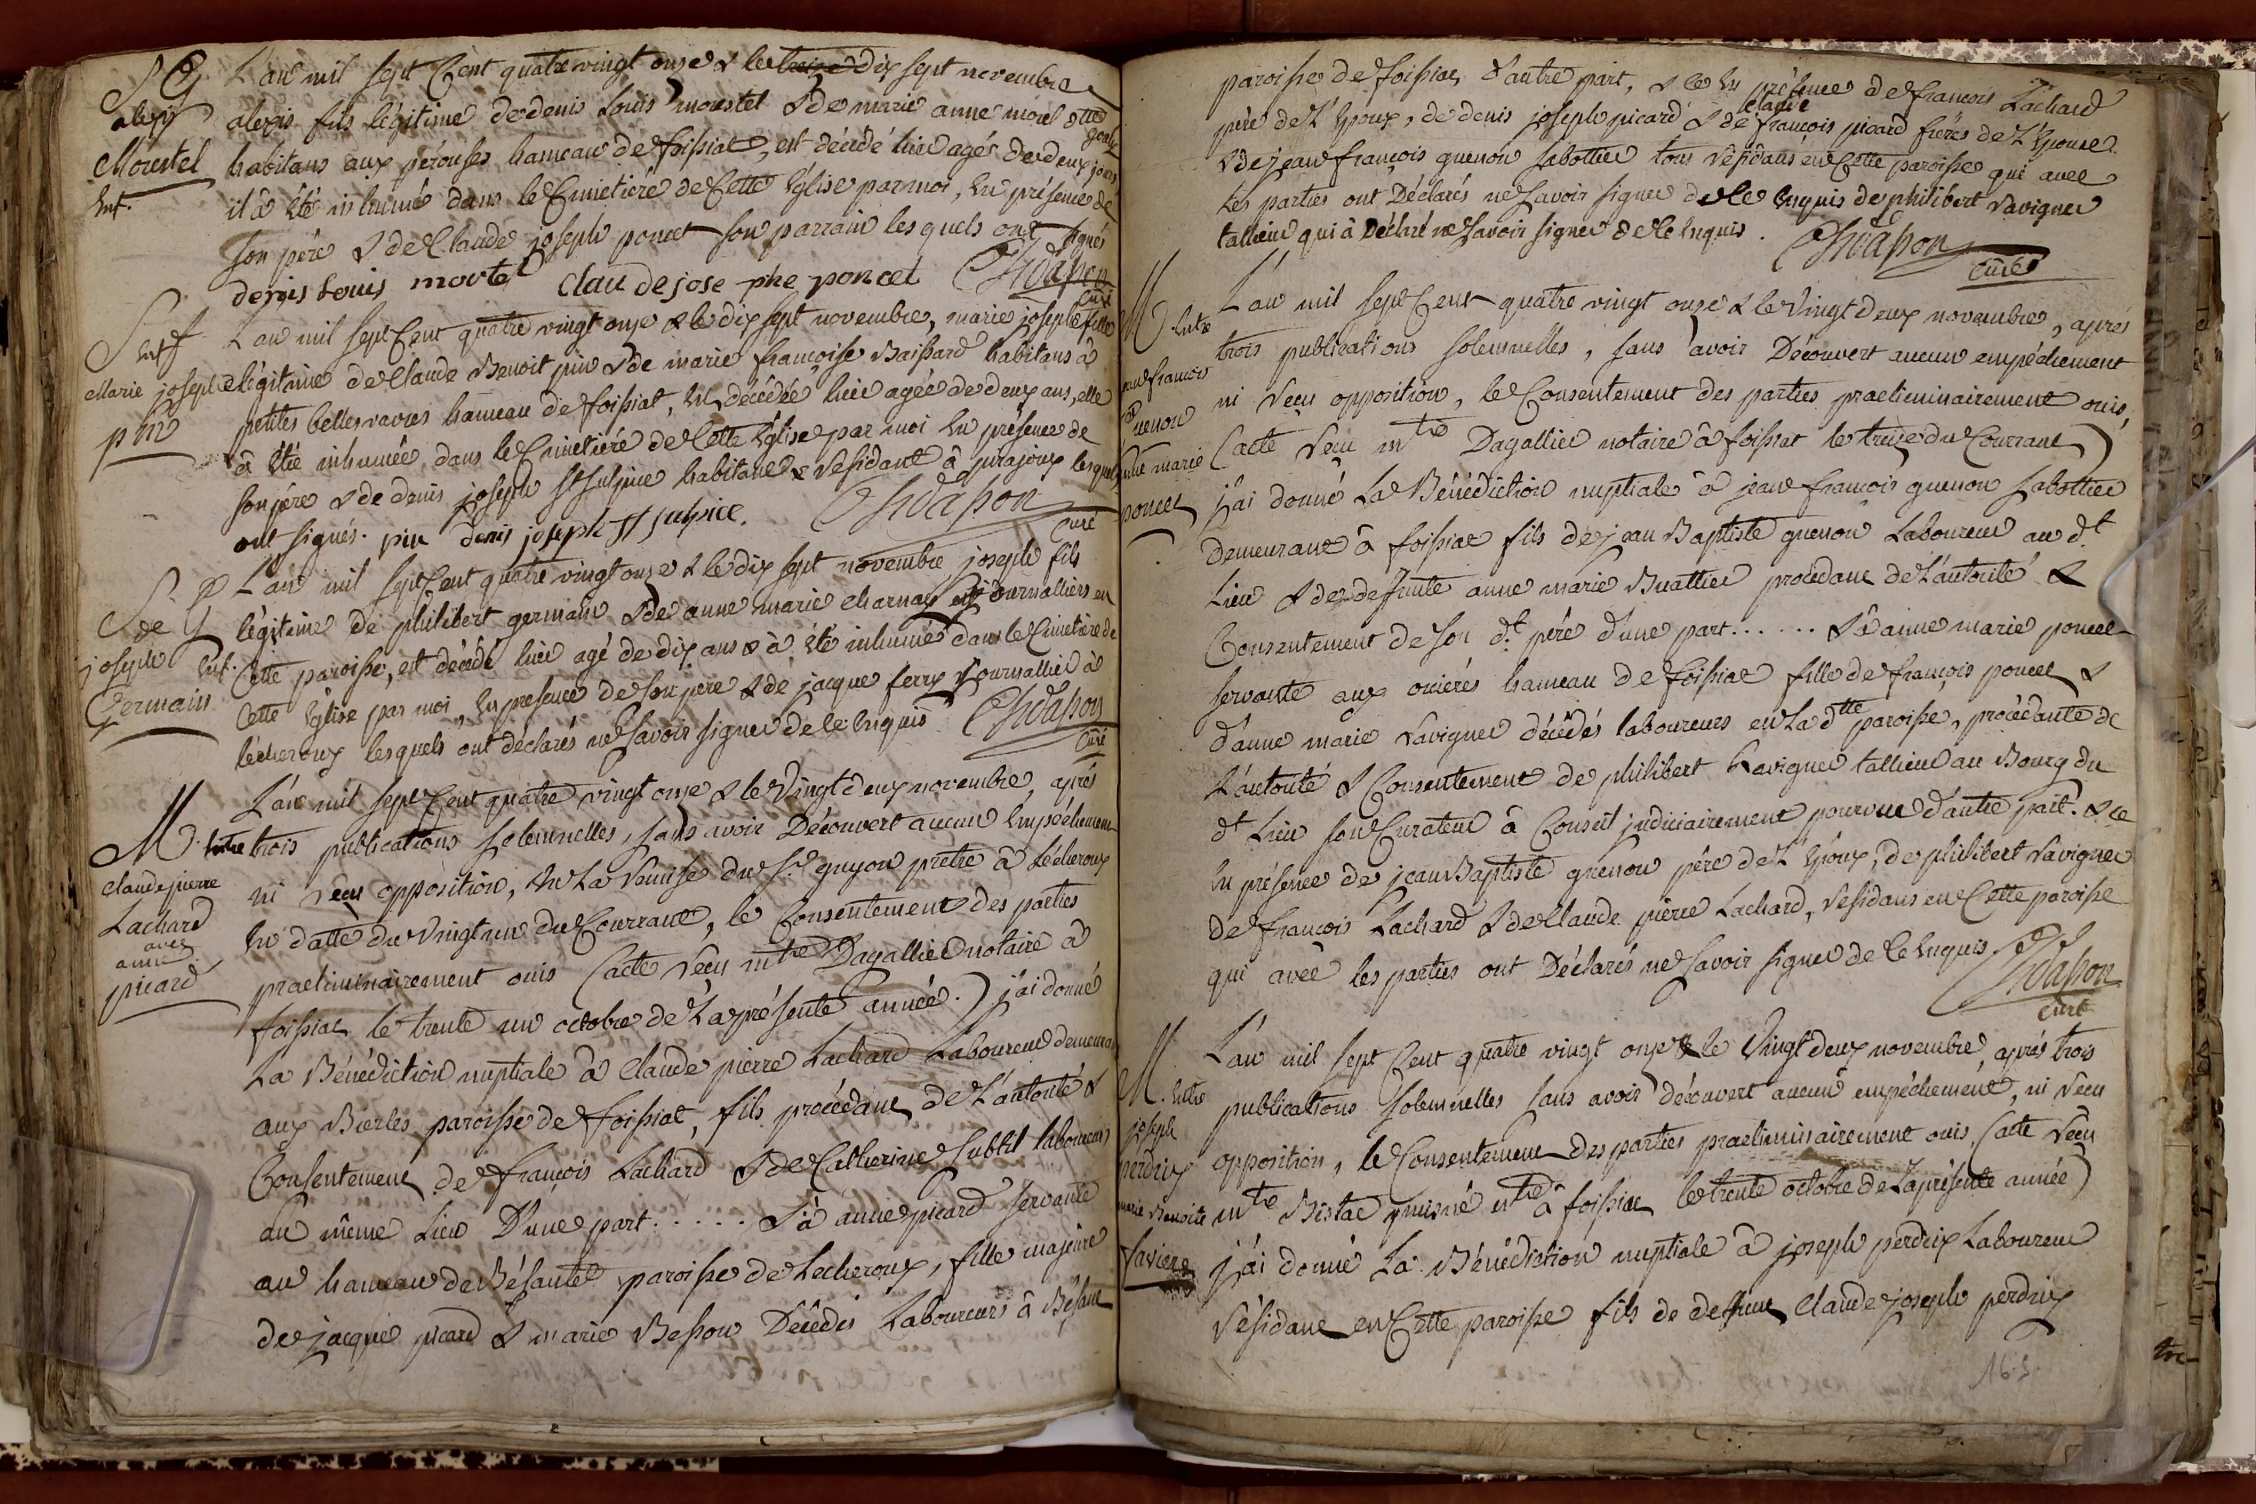 S G
alexis
Morestel
Enf.
L'an mil sept Cent quatre vingt onze & le treize dix sept novembre
alexis fils légitime de denis Louis morestel & de marie anne morel dtte
gonty
habitans aux pérouses hameau de foissiat, est décédé hier agé de deux jours
il à été inhumé dans le Cimetiére de Cette Eglise par moi, En présence de
son pére & de Claude joseph poncet son parrain les quels ont signés
denis Louis mortel Claude josephe poncet Chdapon
Curé
S Enf f
Marie josephe
pin
L'an mil sept Cent quatre vingt onze & le dix sept novembre, marie josephe fille
légitime de Claude Benoit pin & de marie françoise Baissard habitans à
petites bellesvavres hameau de foissiat, Est décédée hier agée de deux ans, elle
à été inhumée dans le Cimetiére de Cette Eglise par moi En présence de
son pére & de denis joseph St Sulpice habitans & résidant à jurajoux lesquels
ont signés. pin denis joseph St sulpice. Chdapon
Curé
S. P
de G
joseph Enf.
Germain
L'an mil sept Cent quatre vingt onze & le dix sept novembre joseph fils
légitime de philibert germain & de anne marie charnay journalliers en
Cette paroisse, est décédé hier agé de dix ans & à été inhumé dans le Cimetiére de
Cette Eglise par moi, En presence de son pere & de jacque ferry journallier à
lécheroux lesquels ont déclarés ne savoir signer de le Enquis Chdapon
Curé
M. Entre
Claude pierre
Lachard
avec
anne
picard
L'an mil sept Cent quatre vingt onze & le Vingt deux novembre, aprés
trois publications solemnelles, sans avoir Découvert aucun Empêchement
ni reçu opposition, Vu La remise du Sr. guyon prétre à Lécheroux
En datte du Vingt un du Courrant, le Consentement des parties
praeliminairement ouis (acte reçu mtre Dagallier notaire à
foissiat le trente un octobre de La présente année.) j'ai donné
La Bénédiction nuptiale à Claude pierre Lachard Laboureur demeurant
aux Biorles paroisse de foissiat, fils procédant de L'autorité &
Consentement de françois Lachard & de Catherine Subtil laboureurs
au même Lieu D'une part . . . . . & à anne picard servante
au hameau de Bésantet paroisse de Lecheroux, fille majeure
de jacque picard & marie Besson Décédés Laboureurs à Bésant
paroisse de foissiat, d'autre part, & ce En présence de françois Lachard
pére de L'Epoux, de denis joseph picard & de Claude françois picard fréres de L'Epouse
& de jean françois guenon sabottier tous résidans en Cette paroisse qui avec
Les parties ont Déclarés ne savoir signer de le Enquis de philibert Ravignier
tallieur qui à Déclaré ne savoir signer de le Enquis. Chdapon
Curé
M. Entre
jean françois
guenon
anne marie
poncet
L'an mil sept Cent quatre vingt onze & le Vingt deux novembre, aprés
trois publications solemnelles, sans avoir Découvert aucun empéchement
ni reçu opposition, le Consentement des parties praeliminairement ouis,
(acte reçu mtre Dagallier notaire à foissiat le treize du Courrant)
j'ai donné La Bénédiction nuptiale à jean françois guenon sabottier
Demeurant à foissiat fils de jean Baptiste guenon Laboureur au dt
Lieu & de deffunte anne marie Buattier procédant de L'autorité &
Consentement de son dt. pére d'une part . . . . . . & à anne marie poncet
servante aux oriérés hameau de foissiat fille de françois poncet &
d'anne marie Ravignier décédés laboureurs en La dtte paroisse, procédante de
L'autorité & Consentement de philibert Ravignier tallieur au Bourg du
dt Lieu son Curateur à Conseil judiciairement pourvue d'autre part. & ce
En présence de jean Baptiste guenon pére de L'Epoux, de philibert Ravignier
de françois Lachard & de Claude pierre Lachard, résidans en Cette paroisse
qui avec les parties ont Déclarés ne savoir signer de le Enquis Chdapon
Curé
M. Entre
joseph
perdrix
marie Benoite
L'an mil sept Cent quatre vingt onze & le Vingt deux novembre, aprés trois
publications solemnelles sans avoir découvert aucun empéchement, ni reçu
opposition, le Consentement des parties praeliminairement ouis, (acte reçu
mtre Bistac puisné ntre à foissiat le trente octobre de La présente année)
j'ai donné La Bénédiction nuptiale à joseph perdrix Laboureur
résidant en Cette paroisse fils de deffunt Claude joseph perdrix